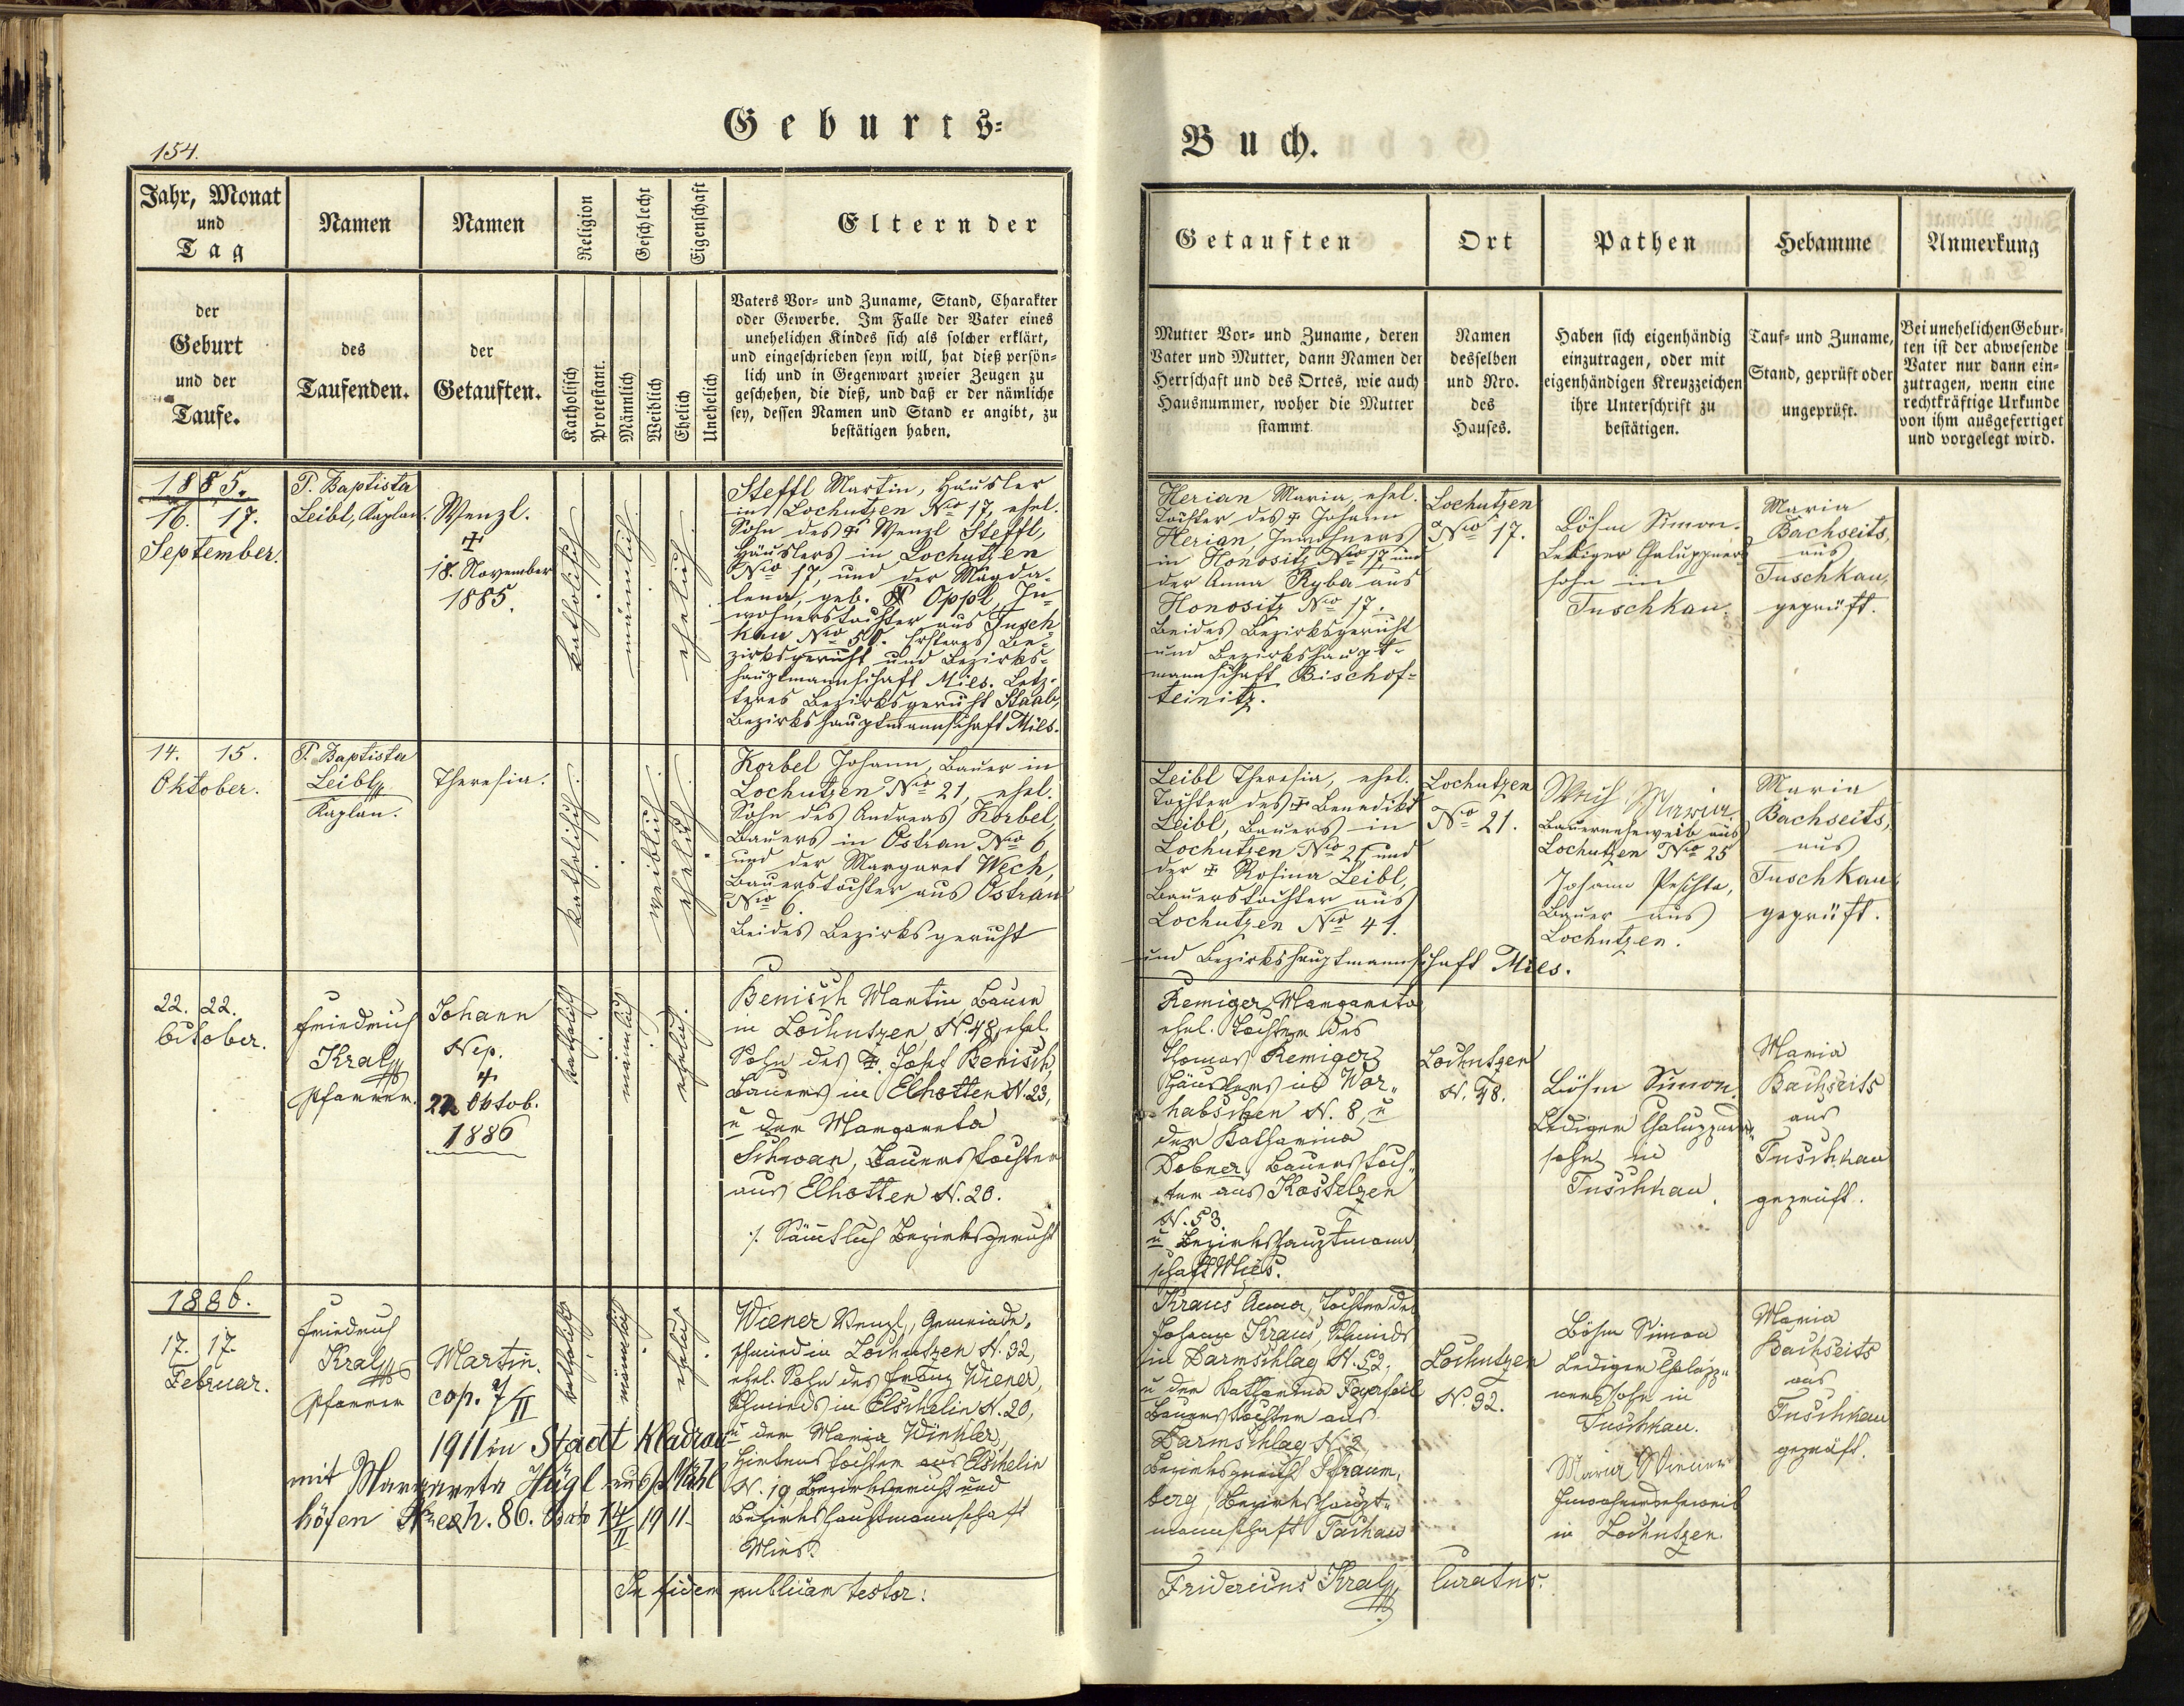 Geburts-
154.
Jahr, Monat
und
Tag
der
Geburt
und der
Taufe.
Namen
des
Taufenden.
Namen
der
Getauften.
Religion
Katholisch
Protestant.
Geschlecht
Männlich
Weiblich
Eigenschaft
Ehelich
Unehelich
Eltern der
Vaters Vor- und Zuname, Stand, Charakter
oder Gewerbe. Im Falle der Vater eines
unehelichen Kindes sich als solcher erklärt,
und eingeschrieben seyn will, hat dieß persön-
lich und in Gegenwart zweier Zeugen zu
geschehen, die dieß, und daß er der nämliche
sey, dessen Namen und Stand er angibt, zu
bestätigen haben.
1885.
16. 17.
September.
P. Baptista
Leibl, Kaplan.
Wenzl.
‡
18. November
1885.
katholisch
männlich
ehelich
Steffl Martin, Häusler
in Lochutzen Nro 17, ehel.
Sohn des ‡ Wenzl Steffl,
Häuslers in Lochutzen
Nro 17, und der Magda-
lena, geb. Oppl, In-
wohnerstochter aus Tusch
kau Nro 50. Ersteres Be-
zirksgericht und Bezirks-
hauptmannschaft Mies. Letz-
teres Bezirksgericht Staab,
Bezirkshauptmannschaft Mies.
14. 15.
Oktober.
P. Baptista
Leibl
Kaplan.
Theresia.
katholisch.
weiblich
ehelich
Korbel Johann, Bauer in
Lochutzen Nro 21, ehel.
Sohn des Andreas Korbel,
Bauers in Ostran Nro 6
und der Margaret Wech,
Bauerstochter aus Ostran
Nro 6.
Beides Bezirksgericht
22. 22.
October.
Friedrich
Kral
Pfarrer.
Johann
Nep.
‡
22 Oktob.
1886
katholisch
männlich
ehelich.
Benisch Martin Bauer
in Lochutzen N. 48, ehel.
Sohn des ‡ Josef Benisch,
Bauers in Elhotten N. 23,
u der Margareta
Schwan, Bauerstochter
aus Elhotten N. 20.
./. Sämtlich Bezirksgericht
1886.
17. 17.
Februar.
Friedrich
Kral
Pfarrer
Martin.
cop. 7/II
1911 in Stadt Kladrau
mit Margareta Hügl aus
höfen 86. 14/II 1911
katholisch
männlich
ehelich
Wiener Wenzl, Gemeinde-
schmied in Lochutzen N. 32,
ehel. Sohn des Franz Wiener,
Schmieds in Elschelin N. 20,
u der Maria Winkler,
Hirtenstochter aus Elschelin
N. 19, Bezirksgericht und
Bezirkshauptmannschaft
Mies.
In fidem publicam testor:
Buch.
Getauften
Mutter Vor- und Zuname, deren
Vater und Mutter, dann Namen der
Herrschaft und des Ortes, wie auch
Hausnummer, woher die Mutter
stammt.
Ort
Namen
desselben
und Nro.
des
Hauses.
Pathen
Haben sich eigenhändig
einzutragen, oder mit
eigenhändigen Kreuzzeichen
ihre Unterschrift zu
bestätigen.
Hebamme
Tauf- und Zuname,
Stand, geprüft oder
ungeprüft.
Anmerkung
Bei unehelichen Gebur-
ten ist der abwesende
Vater nur dann ein-
zutragen, wenn eine
rechtkräftige Urkunde
von ihm ausgefertiget
und vorgelegt wird.
Herian Maria, ehel.
Tochter des ‡ Johann
Herian, Inwohners
in Honositz Nro 17 und
der Anna Ryba aus
Honositz Nro 17.
Beides Bezirksgericht
und Bezirkshaupt-
mannschaft Bischof-
teinitz.
Lochutzen
Nro 17.
Böhm Simon.
Lediger Chaluppners
sohn in
Tuschkau.
Maria
Bachseits,
aus
Tuschkau,
geprüft.
Leibl Theresia, ehel.
Tochter des ‡ Benedikt
Leibl, Bauers in
Lochutzen Nro 21 und
der ‡ Rosina Leibl,
Bauerstochter aus
Lochutzen Nro 41.
und Bezirkshauptmannschaft Mies.
Lochutzen
Nro 21.
Maria
Bauerneheweib aus
Lochutzen Nro 25
Johann Peschta,
Bauer aus
Lochutzen.
Maria
Bachseits,
aus
Tuschkau
geprüft.
Remiger Margareta
ehel. Tochter des
Thomas Remiger
Häuslers in Wor-
habschen N. 8, u
der Katharina
Dobner, Bauerstoch-
ter aus Kostelzen
N. 53.
u Bezirkshauptmann
schaft Mies.
Lochutzen
N. 48.
Böhm Simon
Lediger Chaluppners
sohn in
Tuschkau.
Maria
Bachseits
aus
Tuschkau
geprüft.
Kraus Anna, Tochter des
Johann Kraus, Schmieds
in Darmschlag N. 52,
u der Katharina Feyerfeil
Bauerstochter aus
Darmschlag N. 2,
Bezirksgericht Pfraum-
berg, Bezirkshaupt-
mannschaft Tachau
Lochutzen
N. 32.
Böhm Simon
Lediger Chalupp-
nerssohn in
Tuschkau.
Maria Wiener
Inwohnerseheweib
in Lochutzen
Maria
Bachseits
aus
Tuschkau
geprüft.
Fridericus Kral, Curatus.